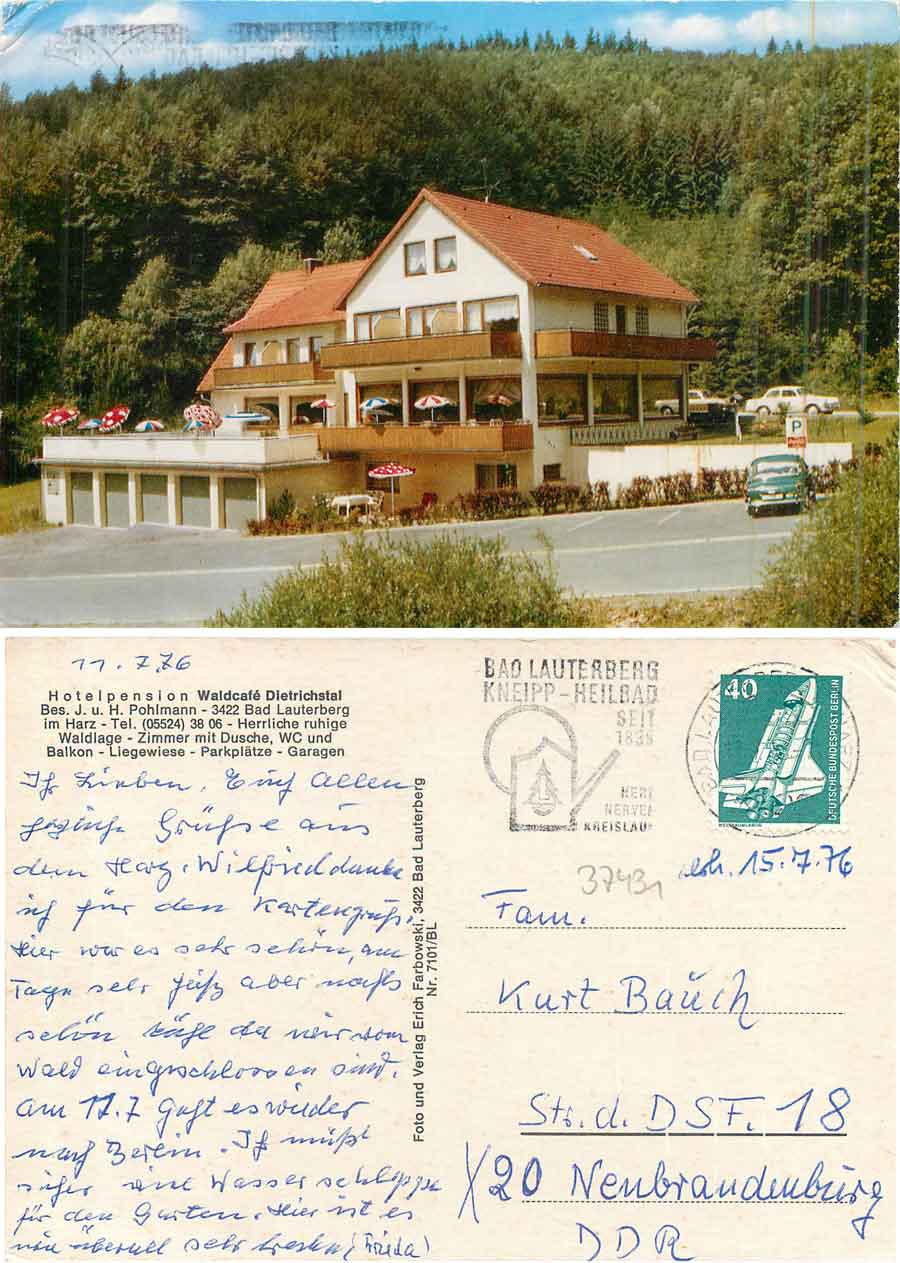 P
11.7.76
Hotelpension Waldcafé Dietrichstal
Bes. J. u. H. Pohlmann - 3422 Bad Lauterberg
im Harz - Tel. (05524) 38 06 - Herrliche ruhige
Waldlage - Zimmer mit Dusche, WC und
Balkon - Liegewiese - Parkplätze - Garagen
Ihr Lieben, Euch Allen
herzliche Grüße aus
dem Harz. Wilfried danke
ich für den Kartengruß.
Hier war es sehr schön, am
Tage sehr heiß aber nachts
schön kühl da wir vom
Wald eingeschlossen sind.
Am 17.7 geht es wieder
nach Berlin. Ihr müßt
sicher viel Wasser schleppen
für den Garten. Hier ist es
überall sehr trocken (Frieda)
Foto und Verlag Erich Farbowski, 3422 Bad Lauterberg
Nr. 7101/BL
BAD LAUTERBERG
KNEIPP-HEILBAD
SEIT
1839
HERZ
NERVEN
KREISLAUF
40
DEUTSCHE BUNDESPOST BERLIN
WELTRAUMLABOR
37431
erh. 15.7.76
Fam.
Kurt Bauch
Str. d. DSF. 18
X20 Neubrandenburg
DDR